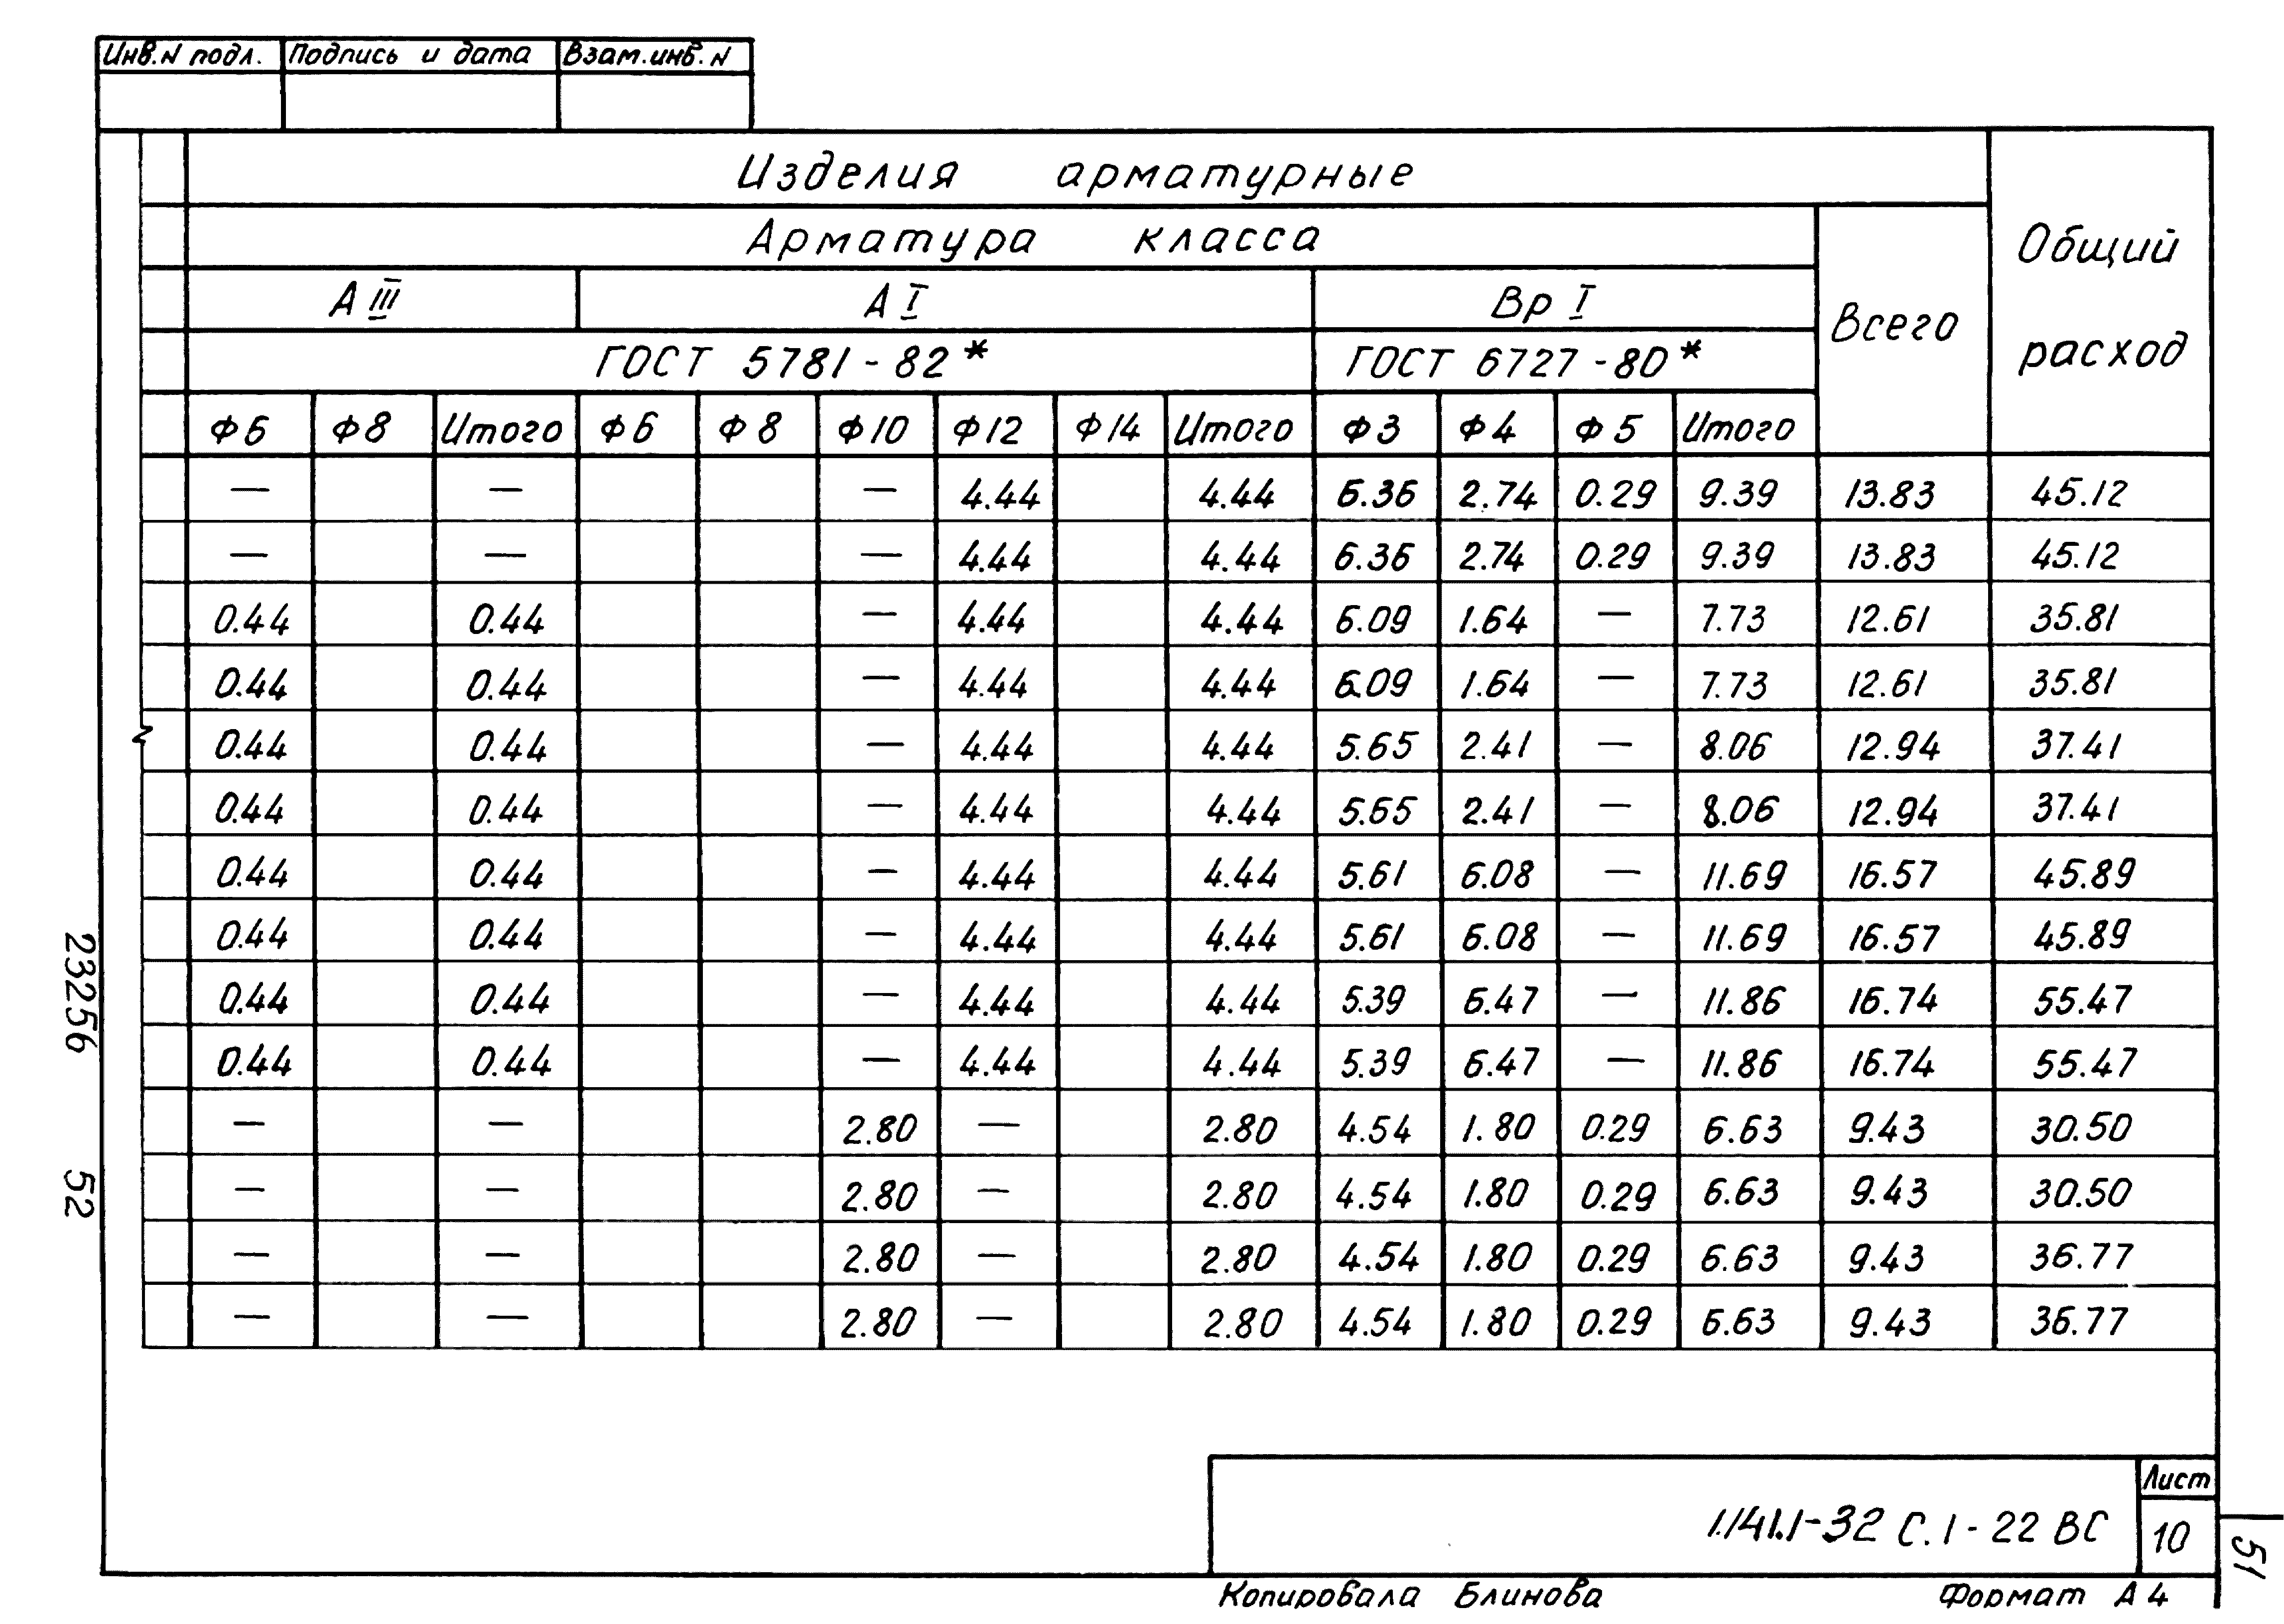 Инв.N подл. Подпись и дата Взам.инв.N
Изделия арматурные
Общий расход
Арматура класса
Всего
А III А I Вр I
ГОСТ 5781-82* ГОСТ 6727-80*
Ф6 Ф8 Итого Ф6 Ф8 Ф10 Ф12 Ф14 Итого Ф3 Ф4 Ф5 Итого
— — — 4.44 4.44 6.36 2.74 0.29 9.39 13.83 45.12
— — — 4.44 4.44 6.36 2.74 0.29 9.39 13.83 45.12
0.44 0.44 — 4.44 4.44 6.09 1.64 — 7.73 12.61 35.81
0.44 0.44 — 4.44 4.44 6.09 1.64 — 7.73 12.61 35.81
0.44 0.44 — 4.44 4.44 5.65 2.41 — 8.06 12.94 37.41
0.44 0.44 — 4.44 4.44 5.65 2.41 — 8.06 12.94 37.41
0.44 0.44 — 4.44 4.44 5.61 6.08 — 11.69 16.57 45.89
0.44 0.44 — 4.44 4.44 5.61 6.08 — 11.69 16.57 45.89
0.44 0.44 — 4.44 4.44 5.39 6.47 — 11.86 16.74 55.47
0.44 0.44 — 4.44 4.44 5.39 6.47 — 11.86 16.74 55.47
— — 2.80 — 2.80 4.54 1.80 0.29 6.63 9.43 30.50
— — 2.80 — 2.80 4.54 1.80 0.29 6.63 9.43 30.50
— — 2.80 — 2.80 4.54 1.80 0.29 6.63 9.43 36.77
— — 2.80 — 2.80 4.54 1.80 0.29 6.63 9.43 36.77
23256 52
1.141.1-32 С.1-22 ВС
Лист
10
51
Копировала Блинова Формат А4